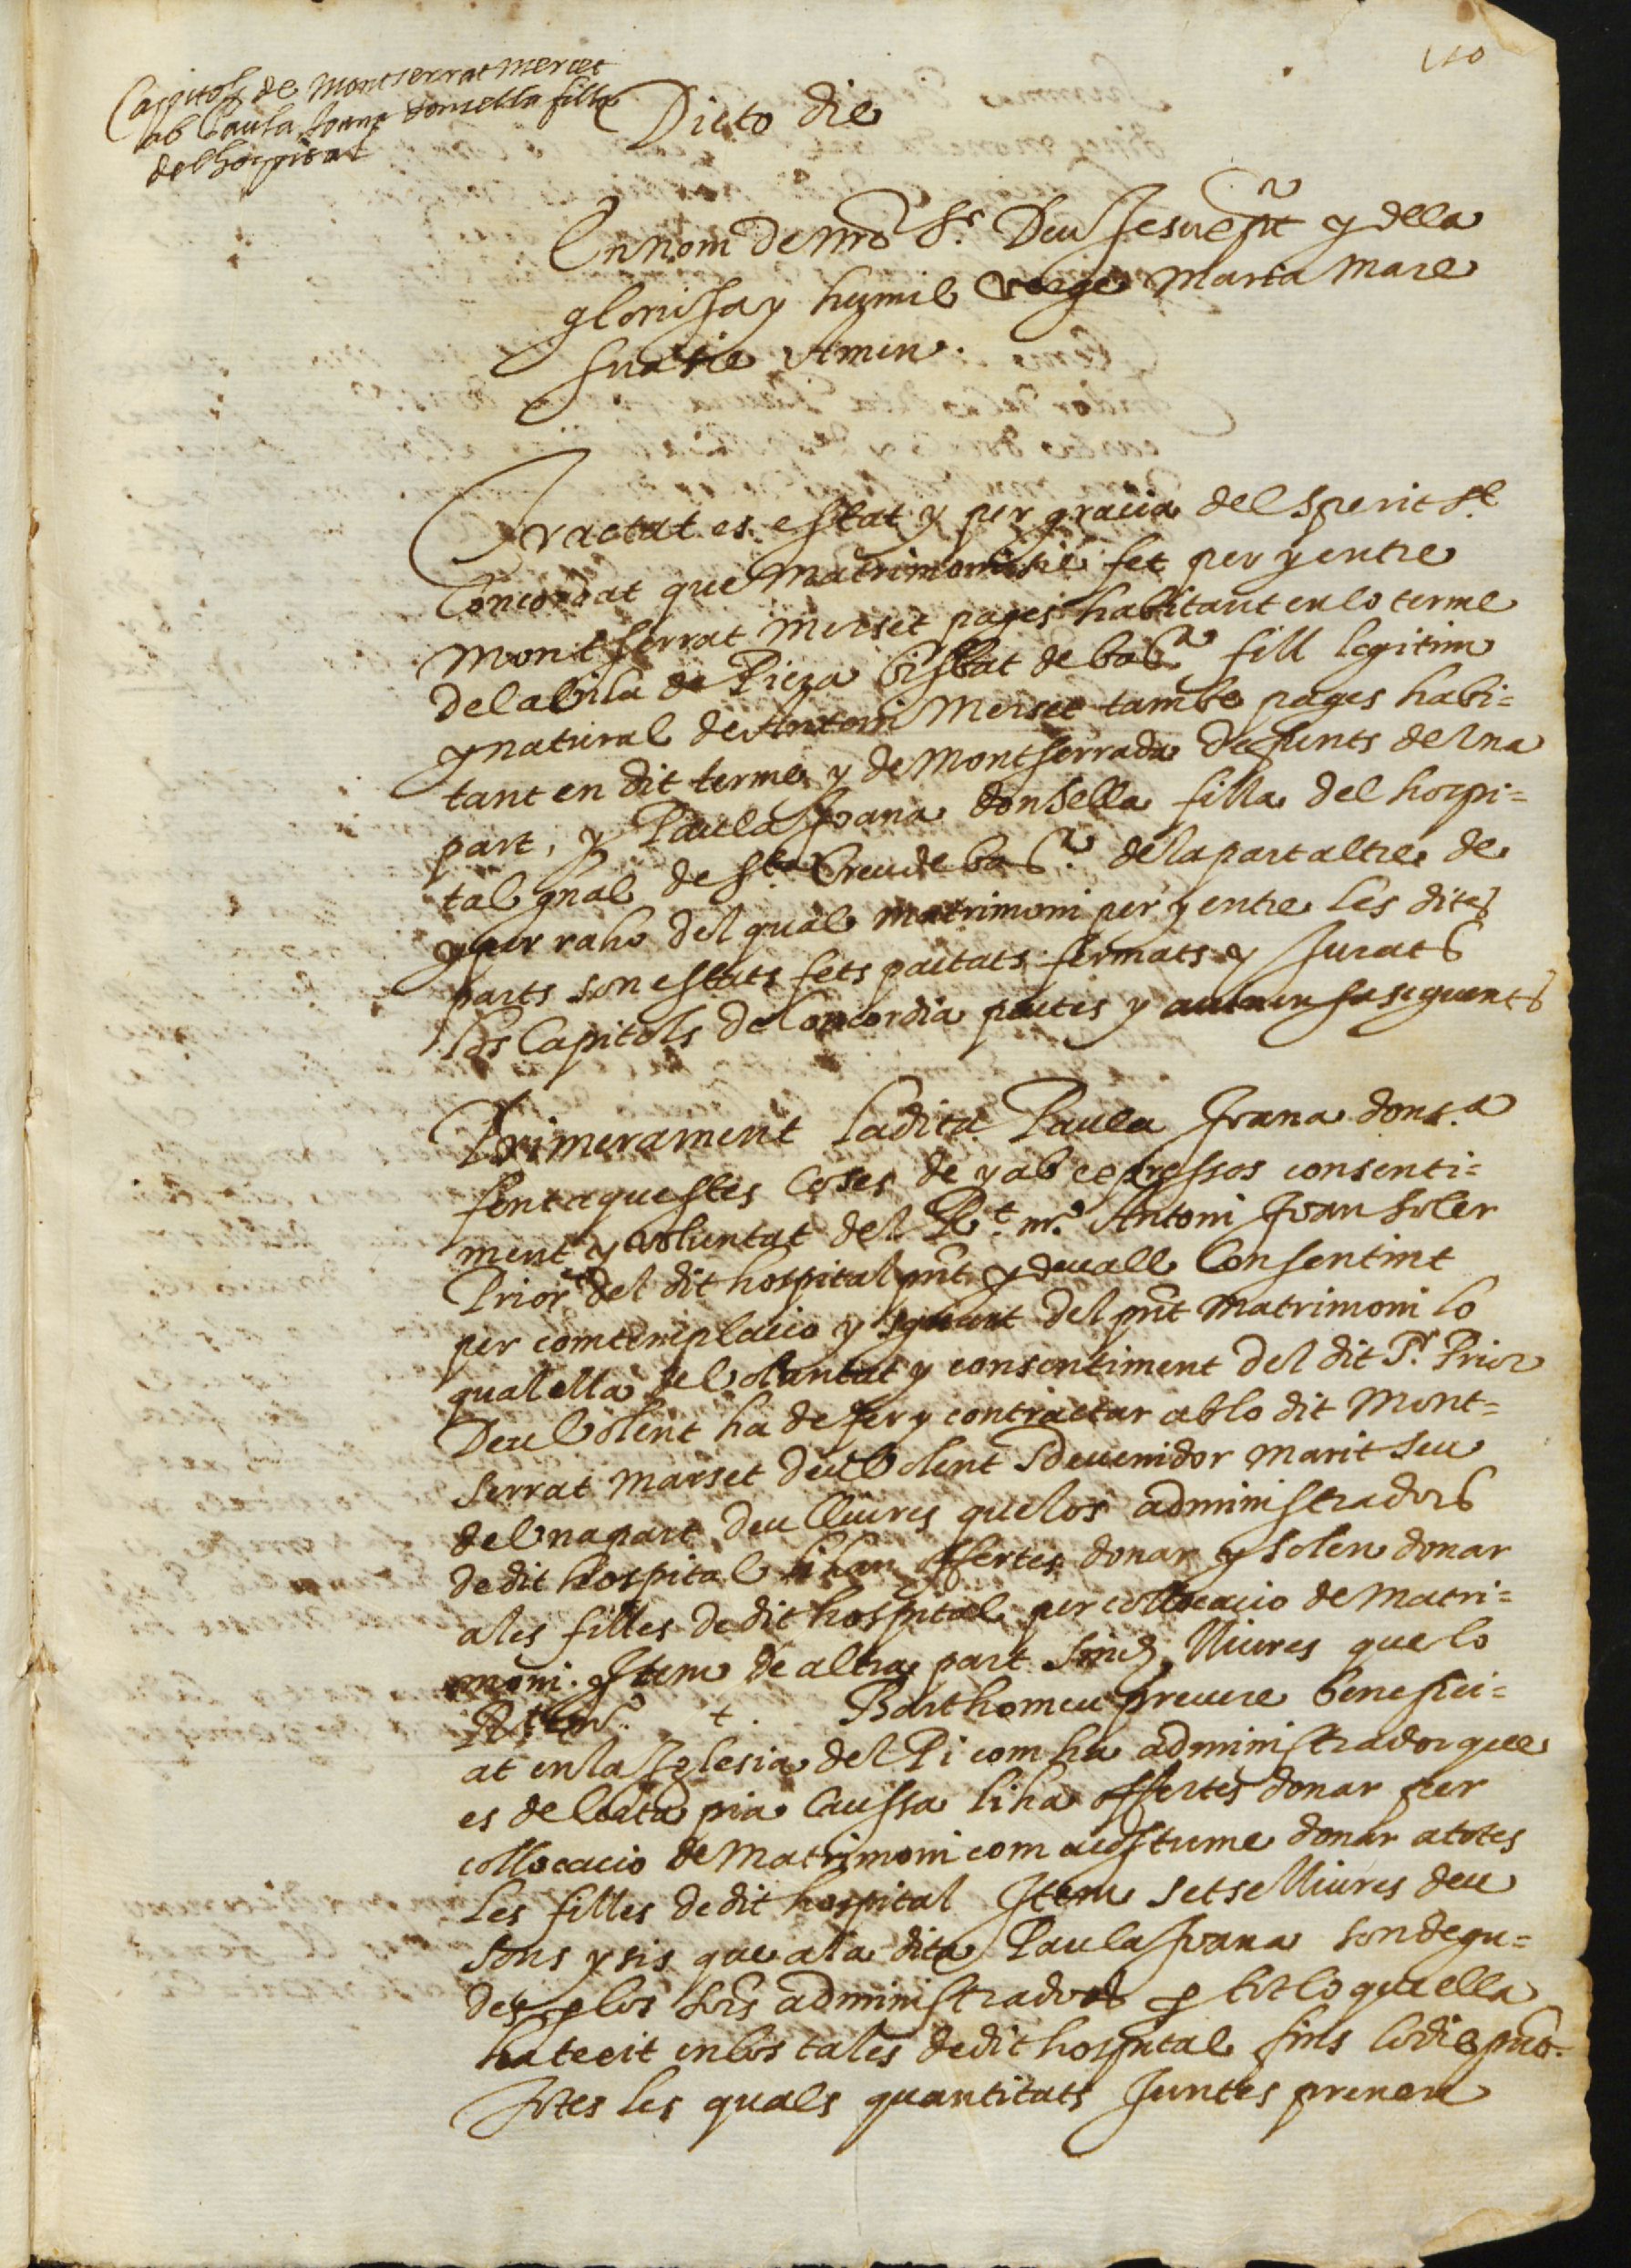 110
Capitols de Montserrat Mercet
ab Paula Joana donsella filla
del hospital
Dicto die
En nom de nrō Sr. Deu Jesuchrt y dela
gloriosa y humil verge Maria Mare
sua sie Amen.
Tractat es estat y per gracia del sperit St.
Concordat que Matrimoni sie fet per y entre
Montserrat Merset pages habitant en lo terme
dela vila de Piera bisbat de bar.ª fill legitim
y natural de Antoni Merset tambe pages habi=
tant en dit terme y de Montserrada defunts de vna
part, y Paula Joana donsella filla del hospi=
tal gñal de Sta Creu de bar.ª de la part altre de
y per raho del qual matrimoni per y entre les dites
parts son estats fets pactats fermats y jurats
los Capitols de Concordia pactes y auinensa seguents
Primerament la dita Paula Joana dons.ª
fent aquestes coses de y ab expressos consenti=
ment y voluntat del Rt. mº. Antoni Joan Soler
Prior del dit hospital pnt y deuall Consentint
per comtemplacio y sguart del pnt matrimoni lo
qual ella de voluntat y consentiment del dit Pr. Prior
Deu Volent ha de fer y contractar ab lo dit Mont=
serrat Marset Deu Volent sdeuenidor marit seu
de vna part deu lliures que los administradors
de dit hospital li han offertes donar y solen donar
a les filles de dit hospital per collocacio de Matri=
moni. Item de altra part sinch lliures que lo
Rt mº. t. Barthomeu preuere benefici=
at en la Iglesia del Pi com ha administrador que
es de la dita pia Caussa li ha offertes donar per
collocacio de Matrimoni com acostume donar a totes
les filles de dit hospital Item setse lliures deu
sons y sis que a la dita Paula Joana son degu=
des p los sors administradors p tot lo que ella
ha texit en los talés de dit hospital fins lo die pnt.
Totes les quals quantitats juntes prenen